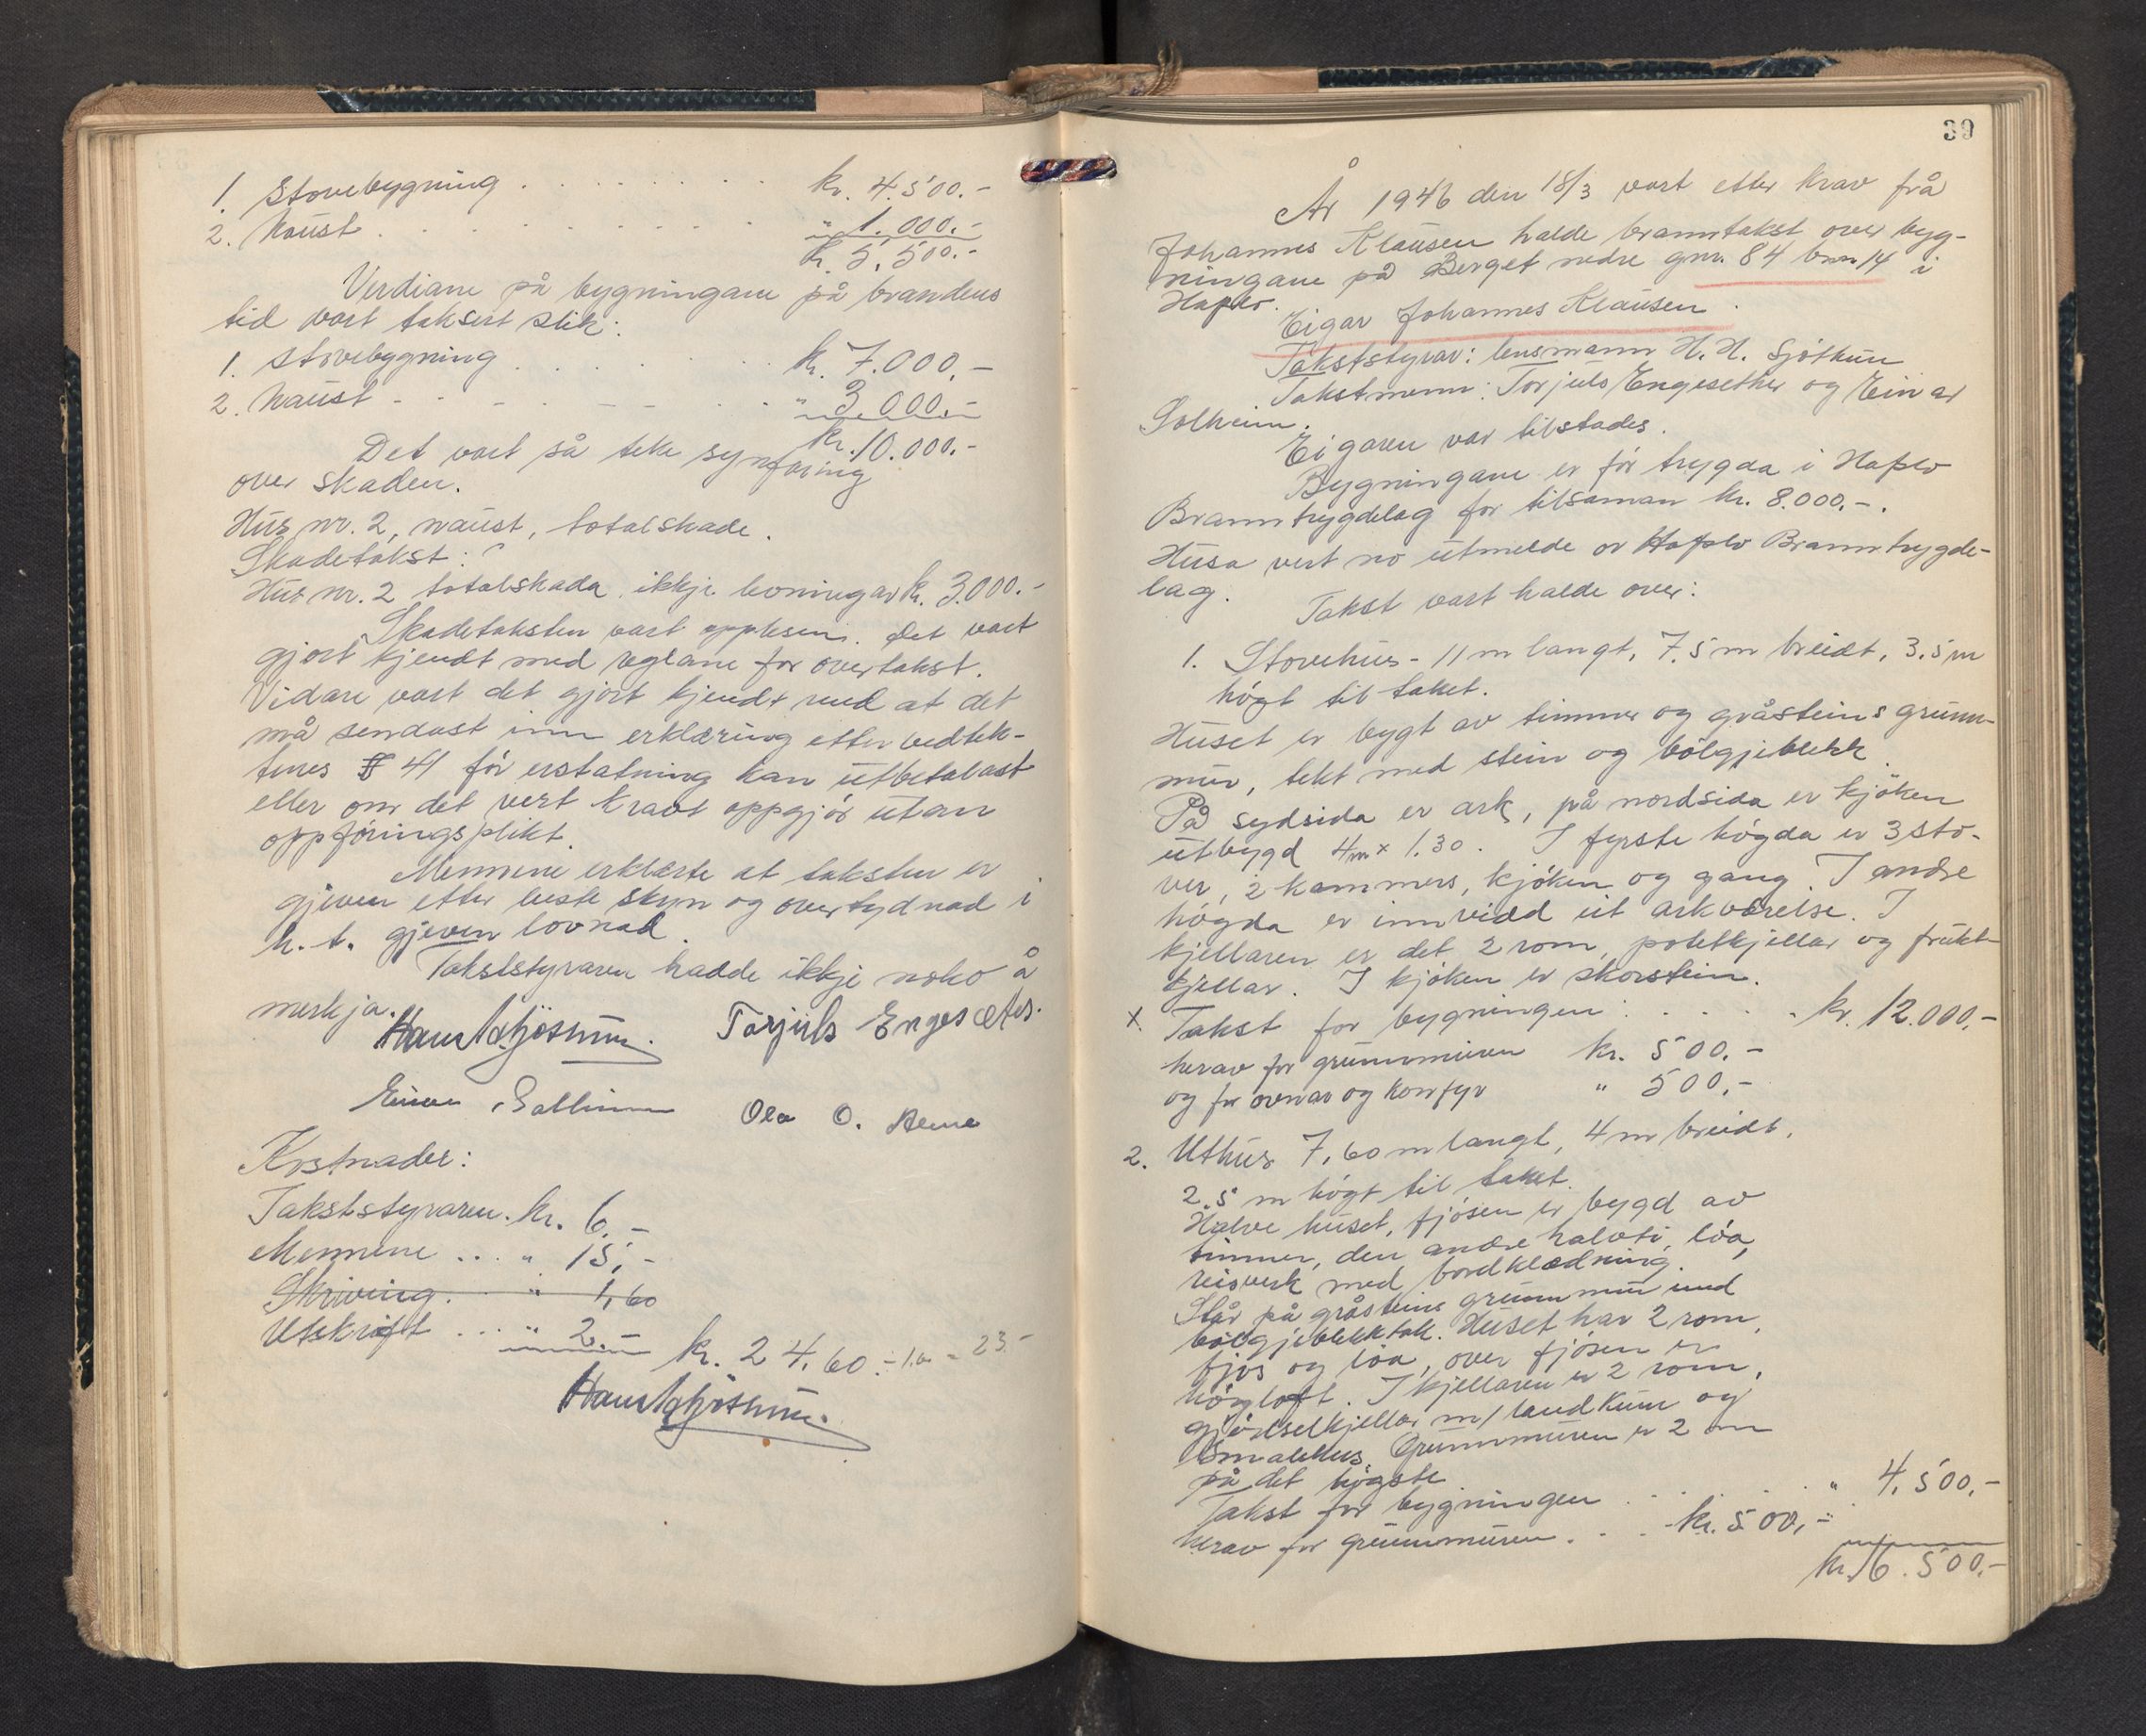 1. Stovebygning . . . . . . . . kr. 4.500.-
2. Naust . . . . . . . . . . " 1.000.-
kr. 5.500.-
Verdiane på bygningane på brandens
tid vart taksert slik:
1. Stovebygning . . . . . . kr. 7.000.-
2. Naust - - - - - - . . " 3.000.-
kr. 10.000.-
Det vart så teke synfaring
over skaden.
Hus nr. 2, naust, totalskade.
Skadetakst:
Hus nr. 2 totalskada, ikkje leivningar kr. 3.000.-
Skadetaksten vart opplesen. Det vart
gjort kjendt med reglane for overtakst.
Vidare vart det gjort kjendt med at det
må sendast inn erklæring etter vedtek-
tenes § 41 før erstatning kan utbetalast
eller om det vert kravt oppgjør utan
oppføringsplikt.
Mennene erklærte at taksten er
gjeven etter beste skyn og overtydnad i
h.t. gjeven lovnad.
Takststyraren hadde ikkje noko å
merkja.
Torjuls Engesæter.
Einar Solheim Ola O. Alme
Kostnader:
Takststyraren. kr. 6,-
Mennene ... " 15,-
Skriving. " 1,60
Utskrift ... " 2.- kr. 24,60 ÷ 1.60 = 23.-
39
År 1946 den 18/3 vart etter krav frå
Johannes Klausen halde branntakst over byg-
ningane på Berget nedre gnr. 84 bnr 14 i
Hafslo.
Eigar Johannes Klausen.
Takststyrar: lensmann H. H. Sjøthun
Takstmenn: Torjuls Engesether og Einar
Solheim.
Eigaren var tilstades.
Bygningane er før trygda i Hafslo
Branntrygdelag for tilsaman kr. 8.000,-.
Husa vert no utmelde or Hafslo Branntrygde-
lag.
Takst vart halde over:
1. Stovehus - 11 m langt, 7,5 m breidt, 3,5 m
høgt til taket.
Huset er bygt av timmer og gråsteins grunn-
mur, tekt med stein og bølgjeblekk.
På sydsida er ark, på nordsida er kjøken
utbygd 4m x 1.30. I fyrste høgda er 3 sto-
ver, 2 kammers, kjøken og gang. I andre
høgda er innreidd eit arkværelse. I
kjellaren er det 2 rom, potetkjellar og frukt-
kjellar. I kjøken er skorstein.
x. Takst for bygningen: . . . . . kr. 12.000,-
herav for grunnmuren kr. 500,-
og for ovnar og komfyr " 500,-
2. Uthus 7,60 m langt, 4 m breidt,
2.5 m høgt til taket.
Halve huset, fjøsen er bygd av
timmer, den andre halvti, løa,
reisverk med bordklædning.
Står på gråsteins grunnmur med
bølgjeblekktak. Huset har 2 rom,
fjøs og løa, over fjøsen er
høgloft. I kjellaren er 2 rom,
gjødselkjellar m/ landkum og
smalehus. Grunnmuren er 2 m
på det høgste
Takst for bygningen . . . . . " 4.500,-
herav for grunnmuren. . . . kr. 500,-
kr. 16.500,-